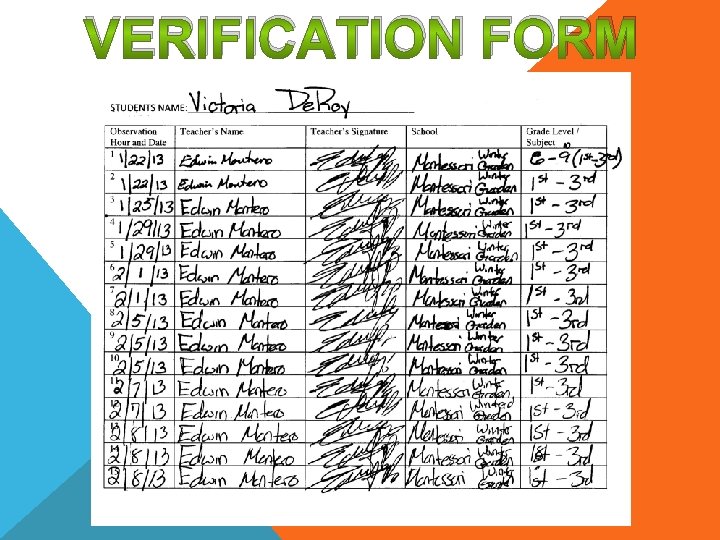 VERIFICATION FORM
STUDENTS NAME: Victoria DeRoy
Observation Hour and Date Teacher's Name Teacher's Signature School Grade Level / Subject
1 1/22/13 Edwin Montero Montessori Winter Garden 6-9 (1st-3rd)
2 1/22/13 Edwin Montero Montessori Winter Garden 1st - 3rd
3 1/25/13 Edwin Montero Montessori Winter Garden 1st - 3rd
4 1/29/13 Edwin Montero Montessori Winter Garden 1st - 3rd
5 1/29/13 Edwin Montero Montessori Winter Garden 1st - 3rd
6 2/1/13 Edwin Montero Montessori Winter Garden 1st - 3rd
7 2/1/13 Edwin Montero Montessori Winter Garden 1st - 3rd
8 2/5/13 Edwin Montero Montessori Winter Garden 1st - 3rd
9 2/5/13 Edwin Montero Montessori Winter Garden 1st - 3rd
10 2/5/13 Edwin Montero Montessori Winter Garden 1st - 3rd
11 2/7/13 Edwin Montero Montessori Winter Garden 1st - 3rd
12 2/7/13 Edwin Montero Montessori Winter Garden 1st - 3rd
13 2/8/13 Edwin Montero Montessori Winter Garden 1st - 3rd
14 2/8/13 Edwin Montero Montessori Winter Garden 1st - 3rd
15 2/8/13 Edwin Montero Montessori Winter Garden 1st - 3rd